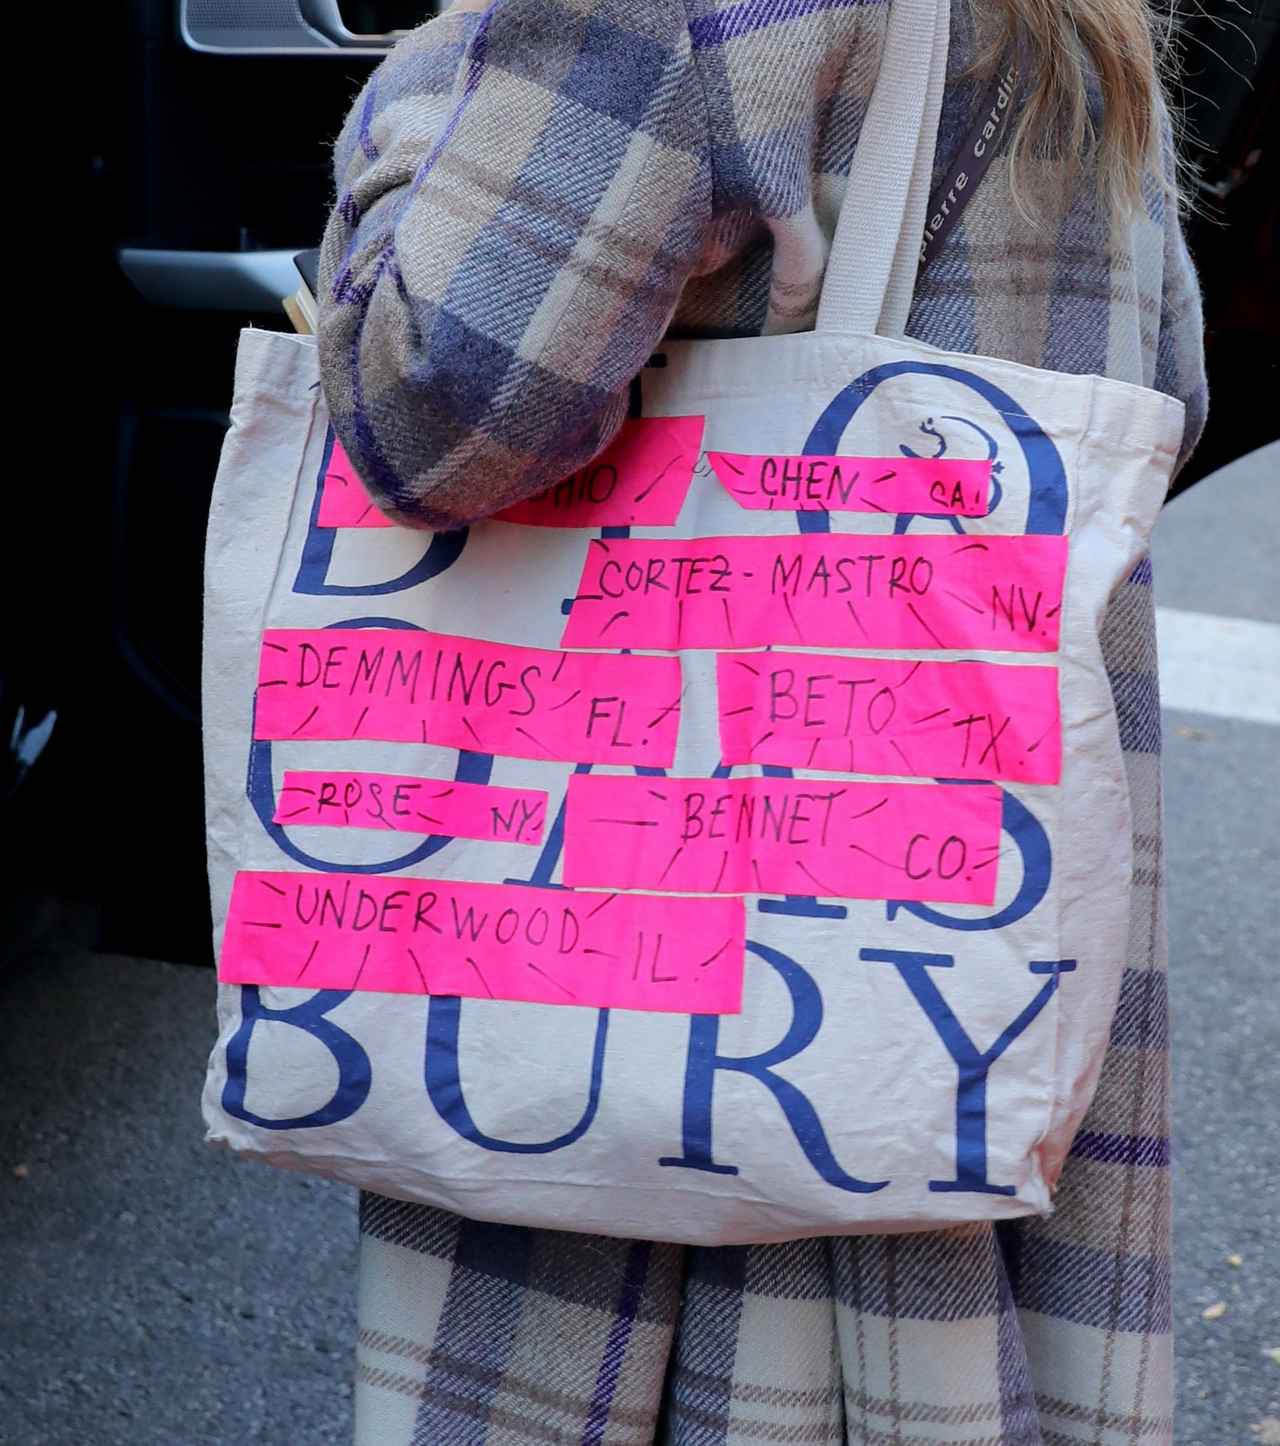 pierre cardin
OHIO
CHEN CA.
CORTEZ-MASTRO NV.
DEMMINGS FL.
BETO TX.
ROSE NY.
BENNET CO.
UNDERWOOD IL.
BURY